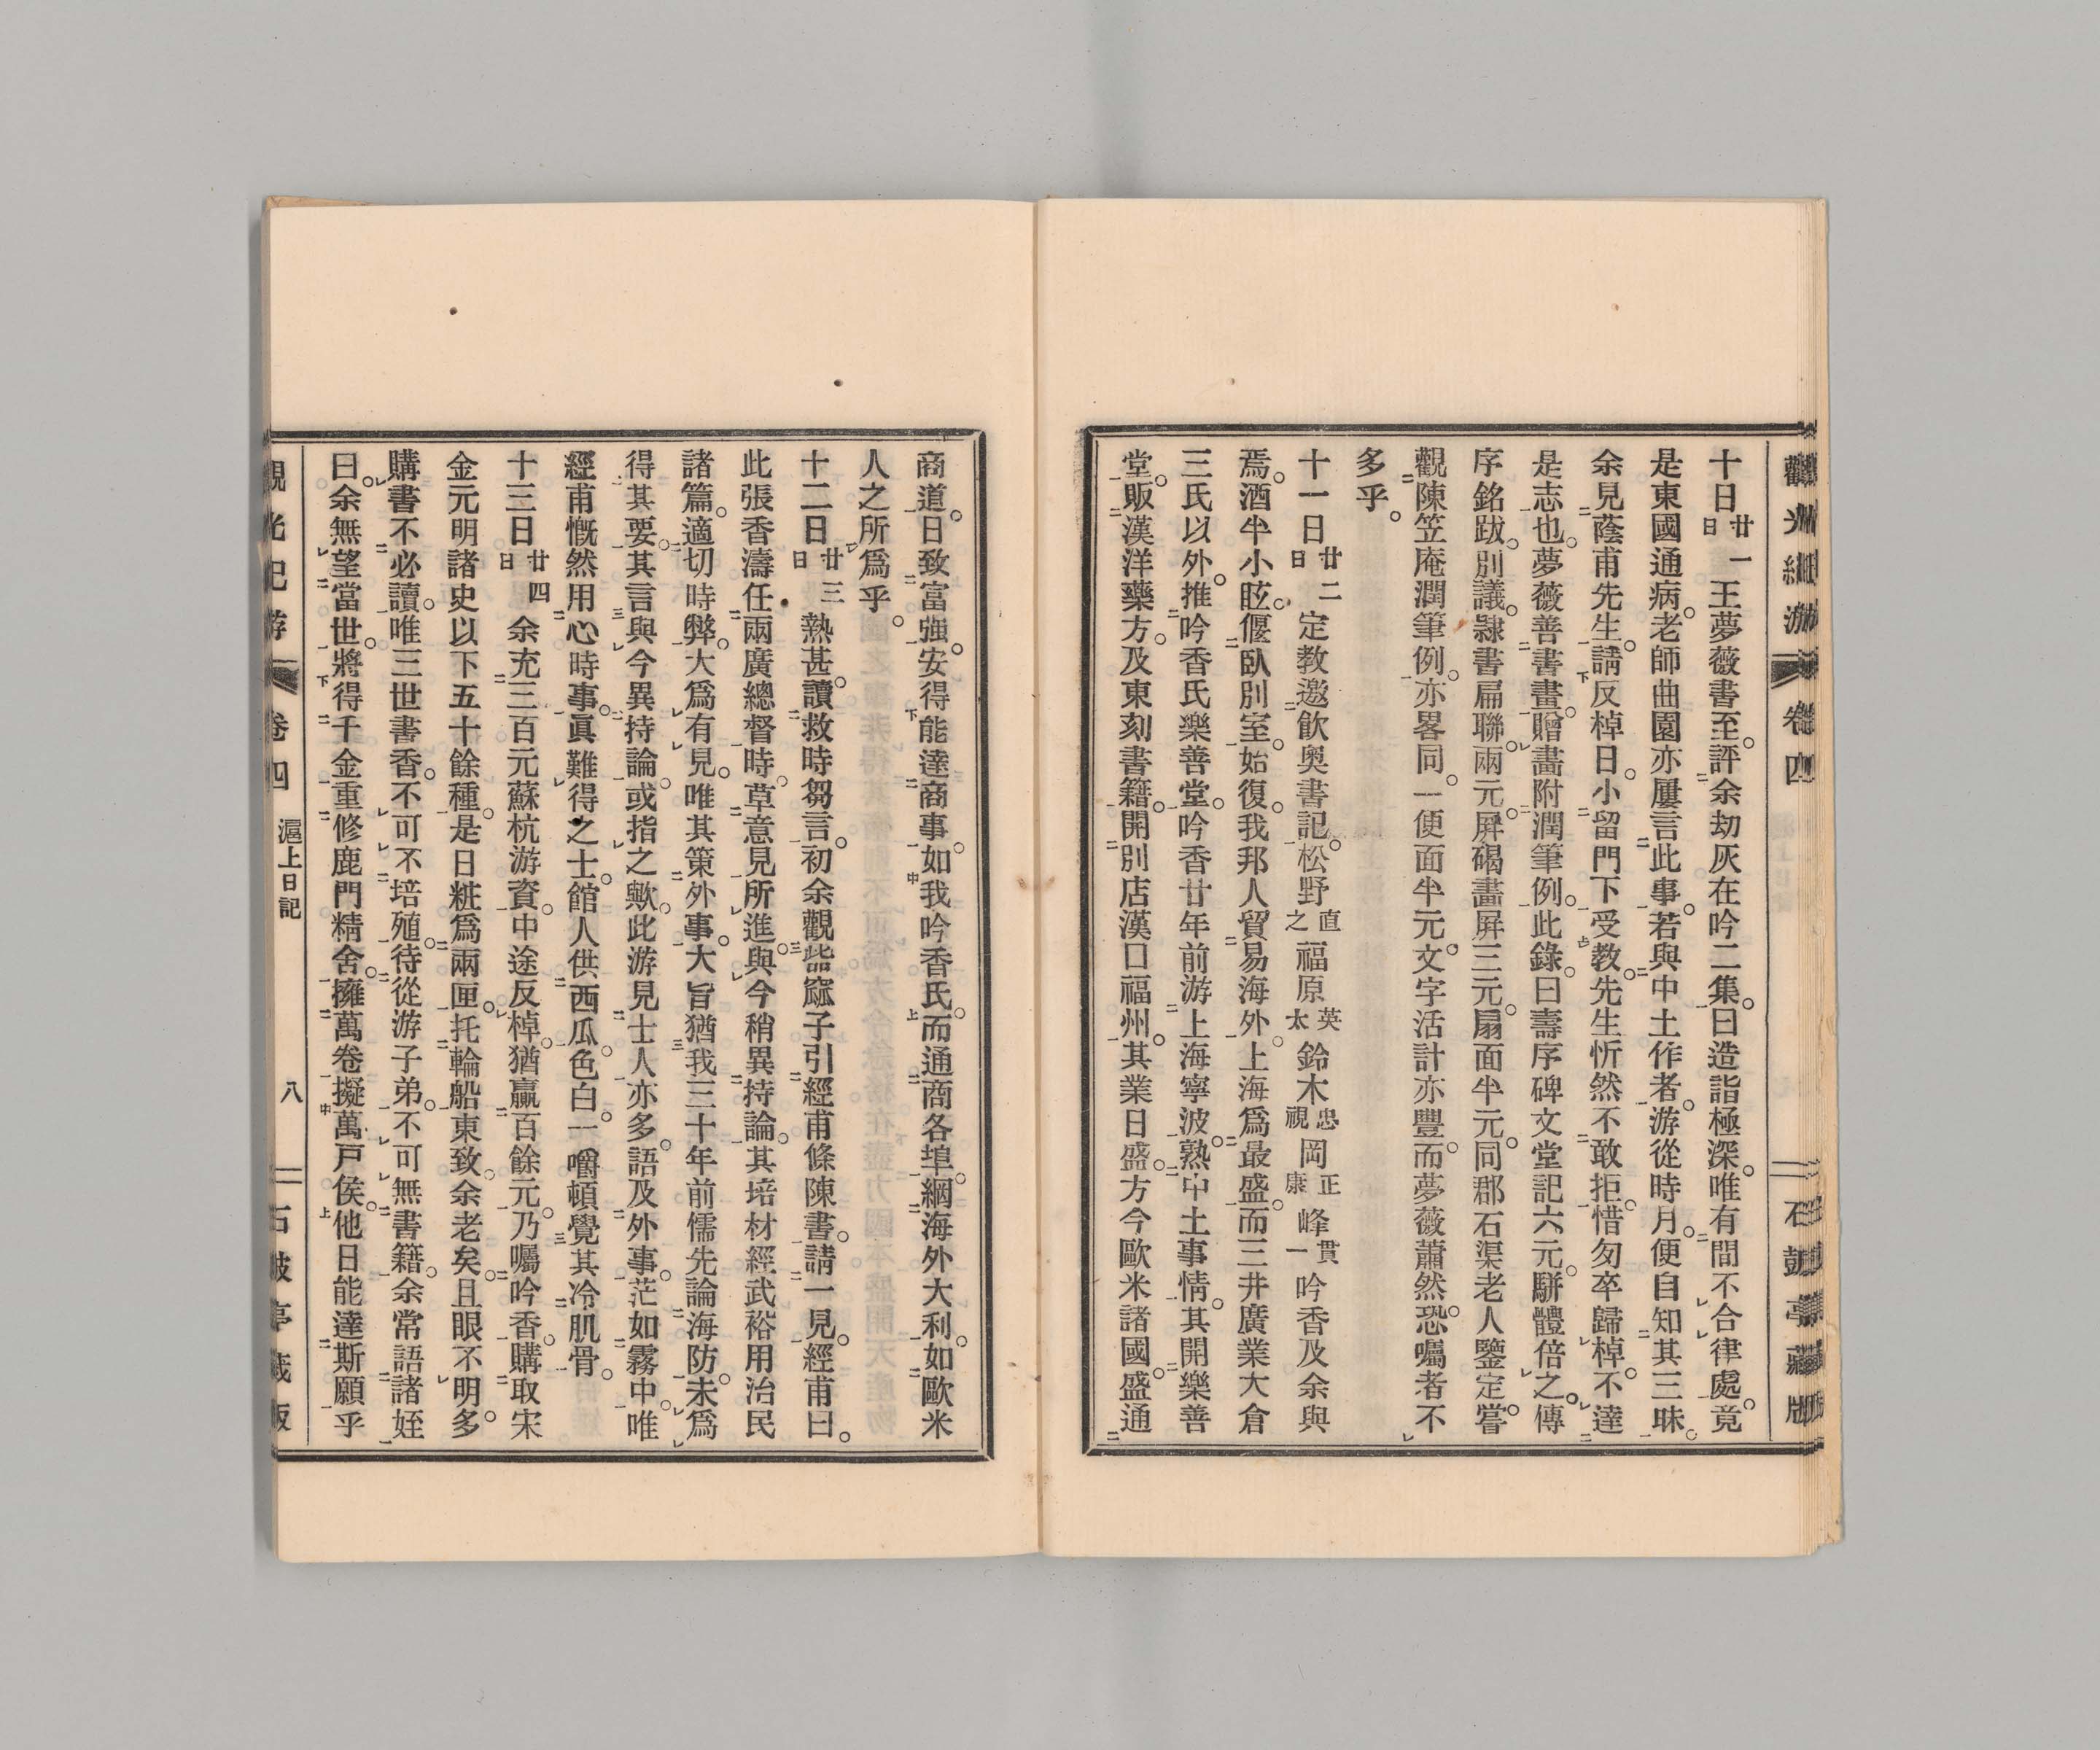 觀光紀游 卷四 石鼓亭藏版
十日廿一日王夢薇書至。評余劫灰在吟二集。曰造詣極深。唯有間不合律處。竟
是東國通病。老師曲園亦屢言此事。若與中土作者。游從時月。便自知其三昧。
余見蔭甫先生。請反棹日。小留門下受教。先生忻然不敢拒。惜匆卒歸棹。不達
是志也。夢薇善書畫。贈畫附潤筆例。此錄。曰壽序碑文堂記六元。駢體倍之。傳
序銘跋。別議。隷書扁聯。兩元。屏碣畫屏三元。扇面半元。同郡石渠老人鑒定。嘗
觀陳笠庵潤筆例。亦畧同。一便面半元。文字活計亦豐。而夢薇蕭然。恐囑者不
多乎。
十一日廿二日定教邀飲奧書記。松野直之福原英太鈴木忠視岡正康峰貫一吟香及余與
焉。酒半小眩。偃臥別室。始復。我邦人貿易海外。上海爲最盛。而三井廣業大倉
三氏以外。推吟香氏樂善堂。吟香廿年前游上海寧波。熟中土事情。其開樂善
堂。販漢洋藥方。及東刻書籍。開別店漢口福州。其業日盛。方今歐米諸國。盛通
商道。日致富強。安得能達商事。如我吟香氏。而通商各埠。綱海外大利。如歐米
人之所爲乎。
十二日廿三日熱甚。讀救時芻言。初余觀㗬窳子引經甫條陳書。請一見。經甫曰。
此張香濤任兩廣總督時。草意見所進。與今稍異持論。其培材經武裕用治民
諸篇。適切時弊。大爲有見。唯其策外事。大旨猶我三十年前儒先論海防。未爲
得其要。其言與今異持論。或指之歟。此游見士人亦多。語及外事。茫如霧中。唯
經甫慨然用心時事。眞難得之士。館人供西瓜。色白。一嚼頓覺其冷肌骨。
十三日廿四日余充三百元蘇杭游資。中途反棹。猶贏百餘元。乃囑吟香。購取宋
金元明諸史以下五十餘種。是日粧爲兩匣。托輪船東致。余老矣。且眼不明。多
購書不必讀。唯三世書香。不可不培殖。待從游子弟。不可無書籍。余常語諸姪
曰。余無望當世。將得千金重修鹿門精舍。擁萬卷擬萬戶侯。他日能達斯願乎
觀光紀游 卷四 滬上日記 八 石鼓亭藏版